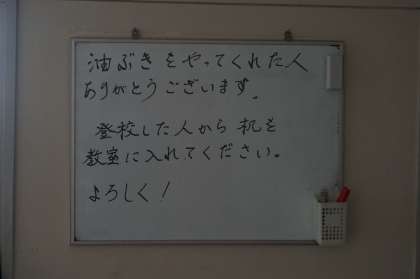 油ぶきをやってくれた人
ありがとうございます。
登校した人から机を
教室に入れてください。
よろしく!